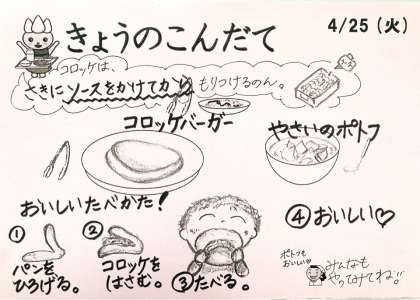 きょうのこんだて
4/25（火）
コロッケは、
さきにソースをかけてから もりつけるのん。
コロッケバーガー
やさいのポトフ
おいしいたべかた！
① パンをひろげる。
② コロッケをはさむ。
③たべる。
④おいしい♡
ポトフも
おいしい♡
みんなも
やってみてね！